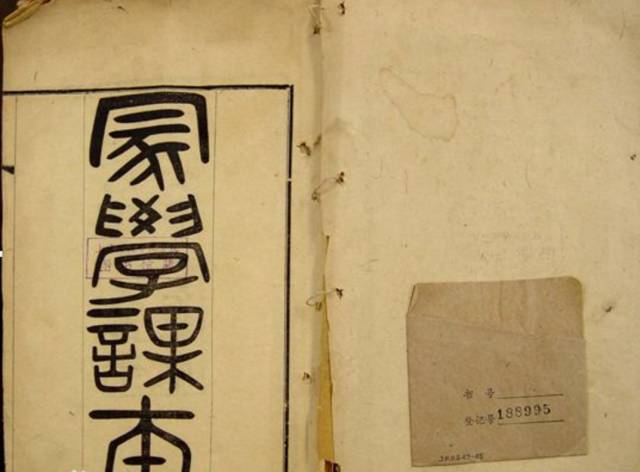 家學課本
书号
登记号188995